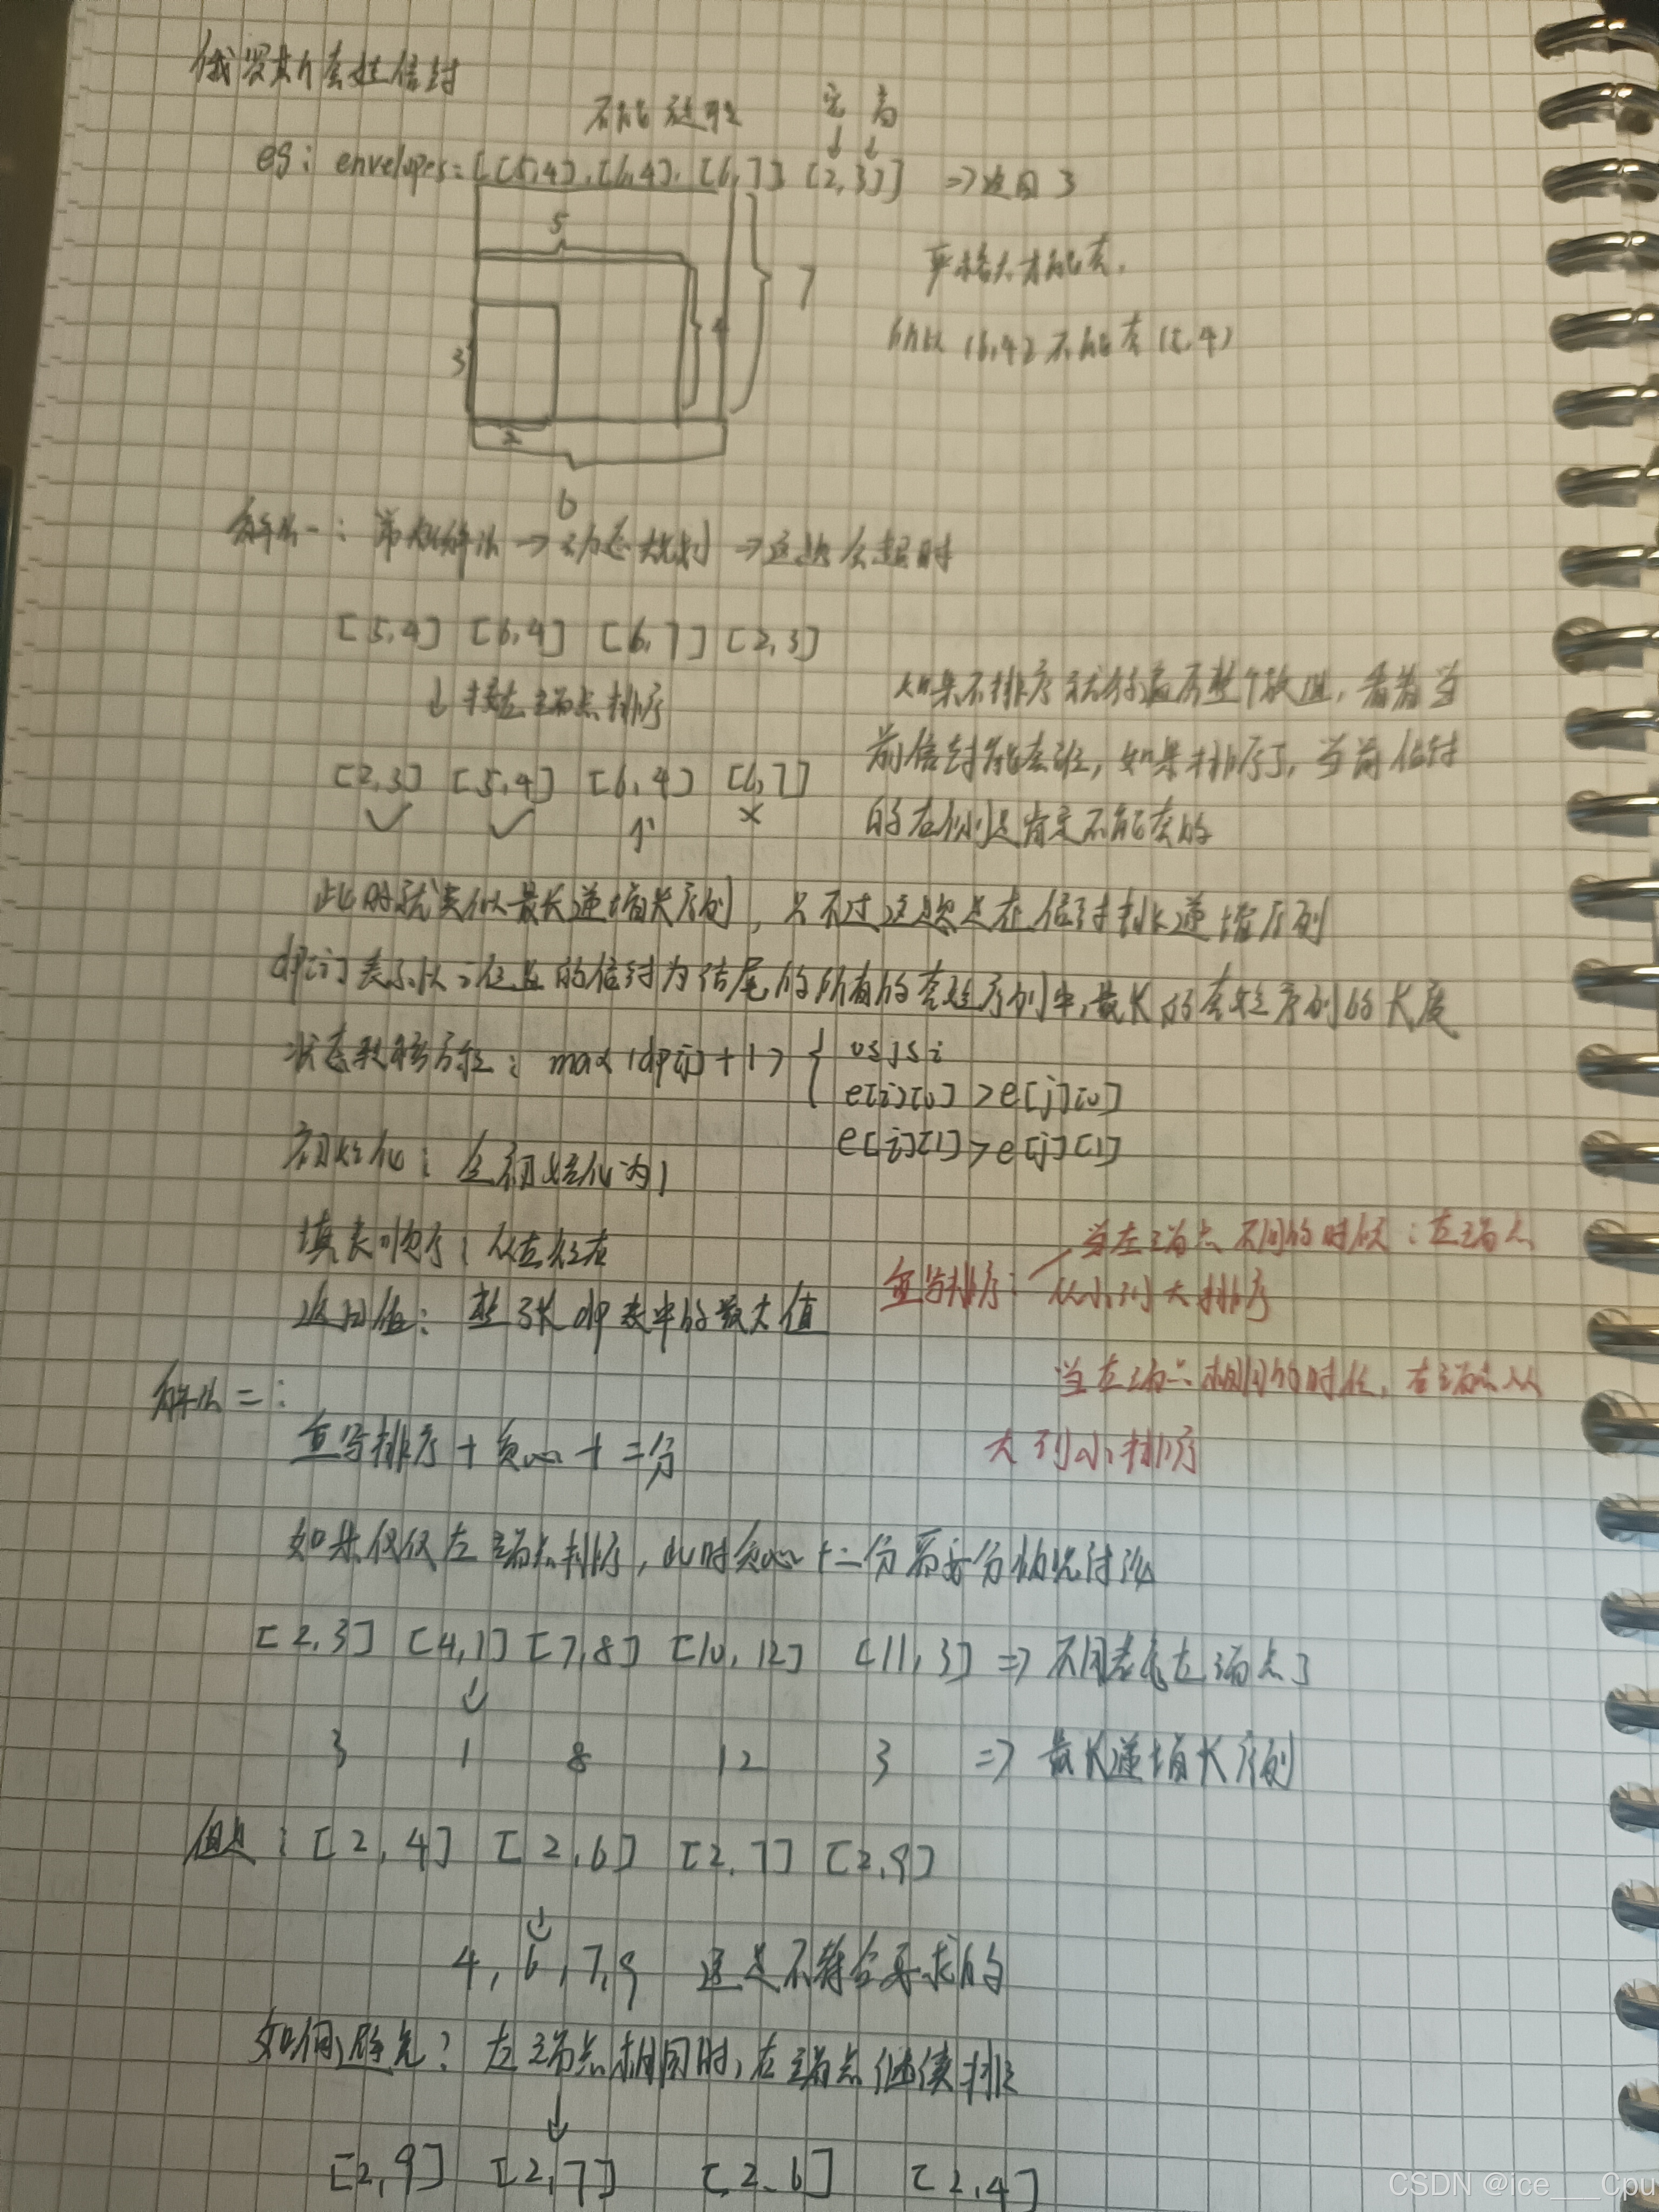 俄罗斯套娃信封
不能旋转 宽 高
eg: envelopes=[[5,4],[6,4],[6,7],[2,3]] => 返回 3
5
7
严格大才能套,
4
3
所以 (6,4) 不能套 (5,4)
2
6
解法一: 常规解法 → 动态规划 → 这题会超时
[5,4] [6,4] [6,7] [2,3]
↓ 按左端点排序
如果不排序 就得遍历整个数组, 看看当
前信封能套谁, 如果排序了, 当前信封
的右侧是肯定不能套的
[2,3] [5,4] [6,4] [6,7]
✓ ✓ ↑ ×
此时就类似最长递增子序列, 只不过这题是在信封挑递增序列
dp[i]表示以i位置的信封为结尾的所有的套娃序列中,最长的套娃序列的长度
状态转移方程: max(dp[j]+1) { 0≤j≤i
e[i][0] > e[j][0]
e[i][1] > e[j][1]
初始化: 全初始化为1
填表顺序: 从左往右
返回值: 整张dp表中的最大值
重写排序: 当左端点不同的时候: 左端点
从小到大排序
当左端点相同的时候, 右端点从
大到小排序
解法二:
重写排序 + 贪心 + 二分
如果仅仅左端点排序, 此时贪心+二分需要分情况讨论
[2,3] [4,1] [7,8] [10,12] [11,3] => 不用考虑左端点了
↓
3 1 8 12 3 => 最长递增子序列
但是: [2,4] [2,6] [2,7] [2,9]
↓
4,6,7,9 这是不符合要求的
如何避免? 左端点相同时, 右端点继续排
↓
[2,9] [2,7] [2,6] [2,4]
CSDN @ice___Cpu